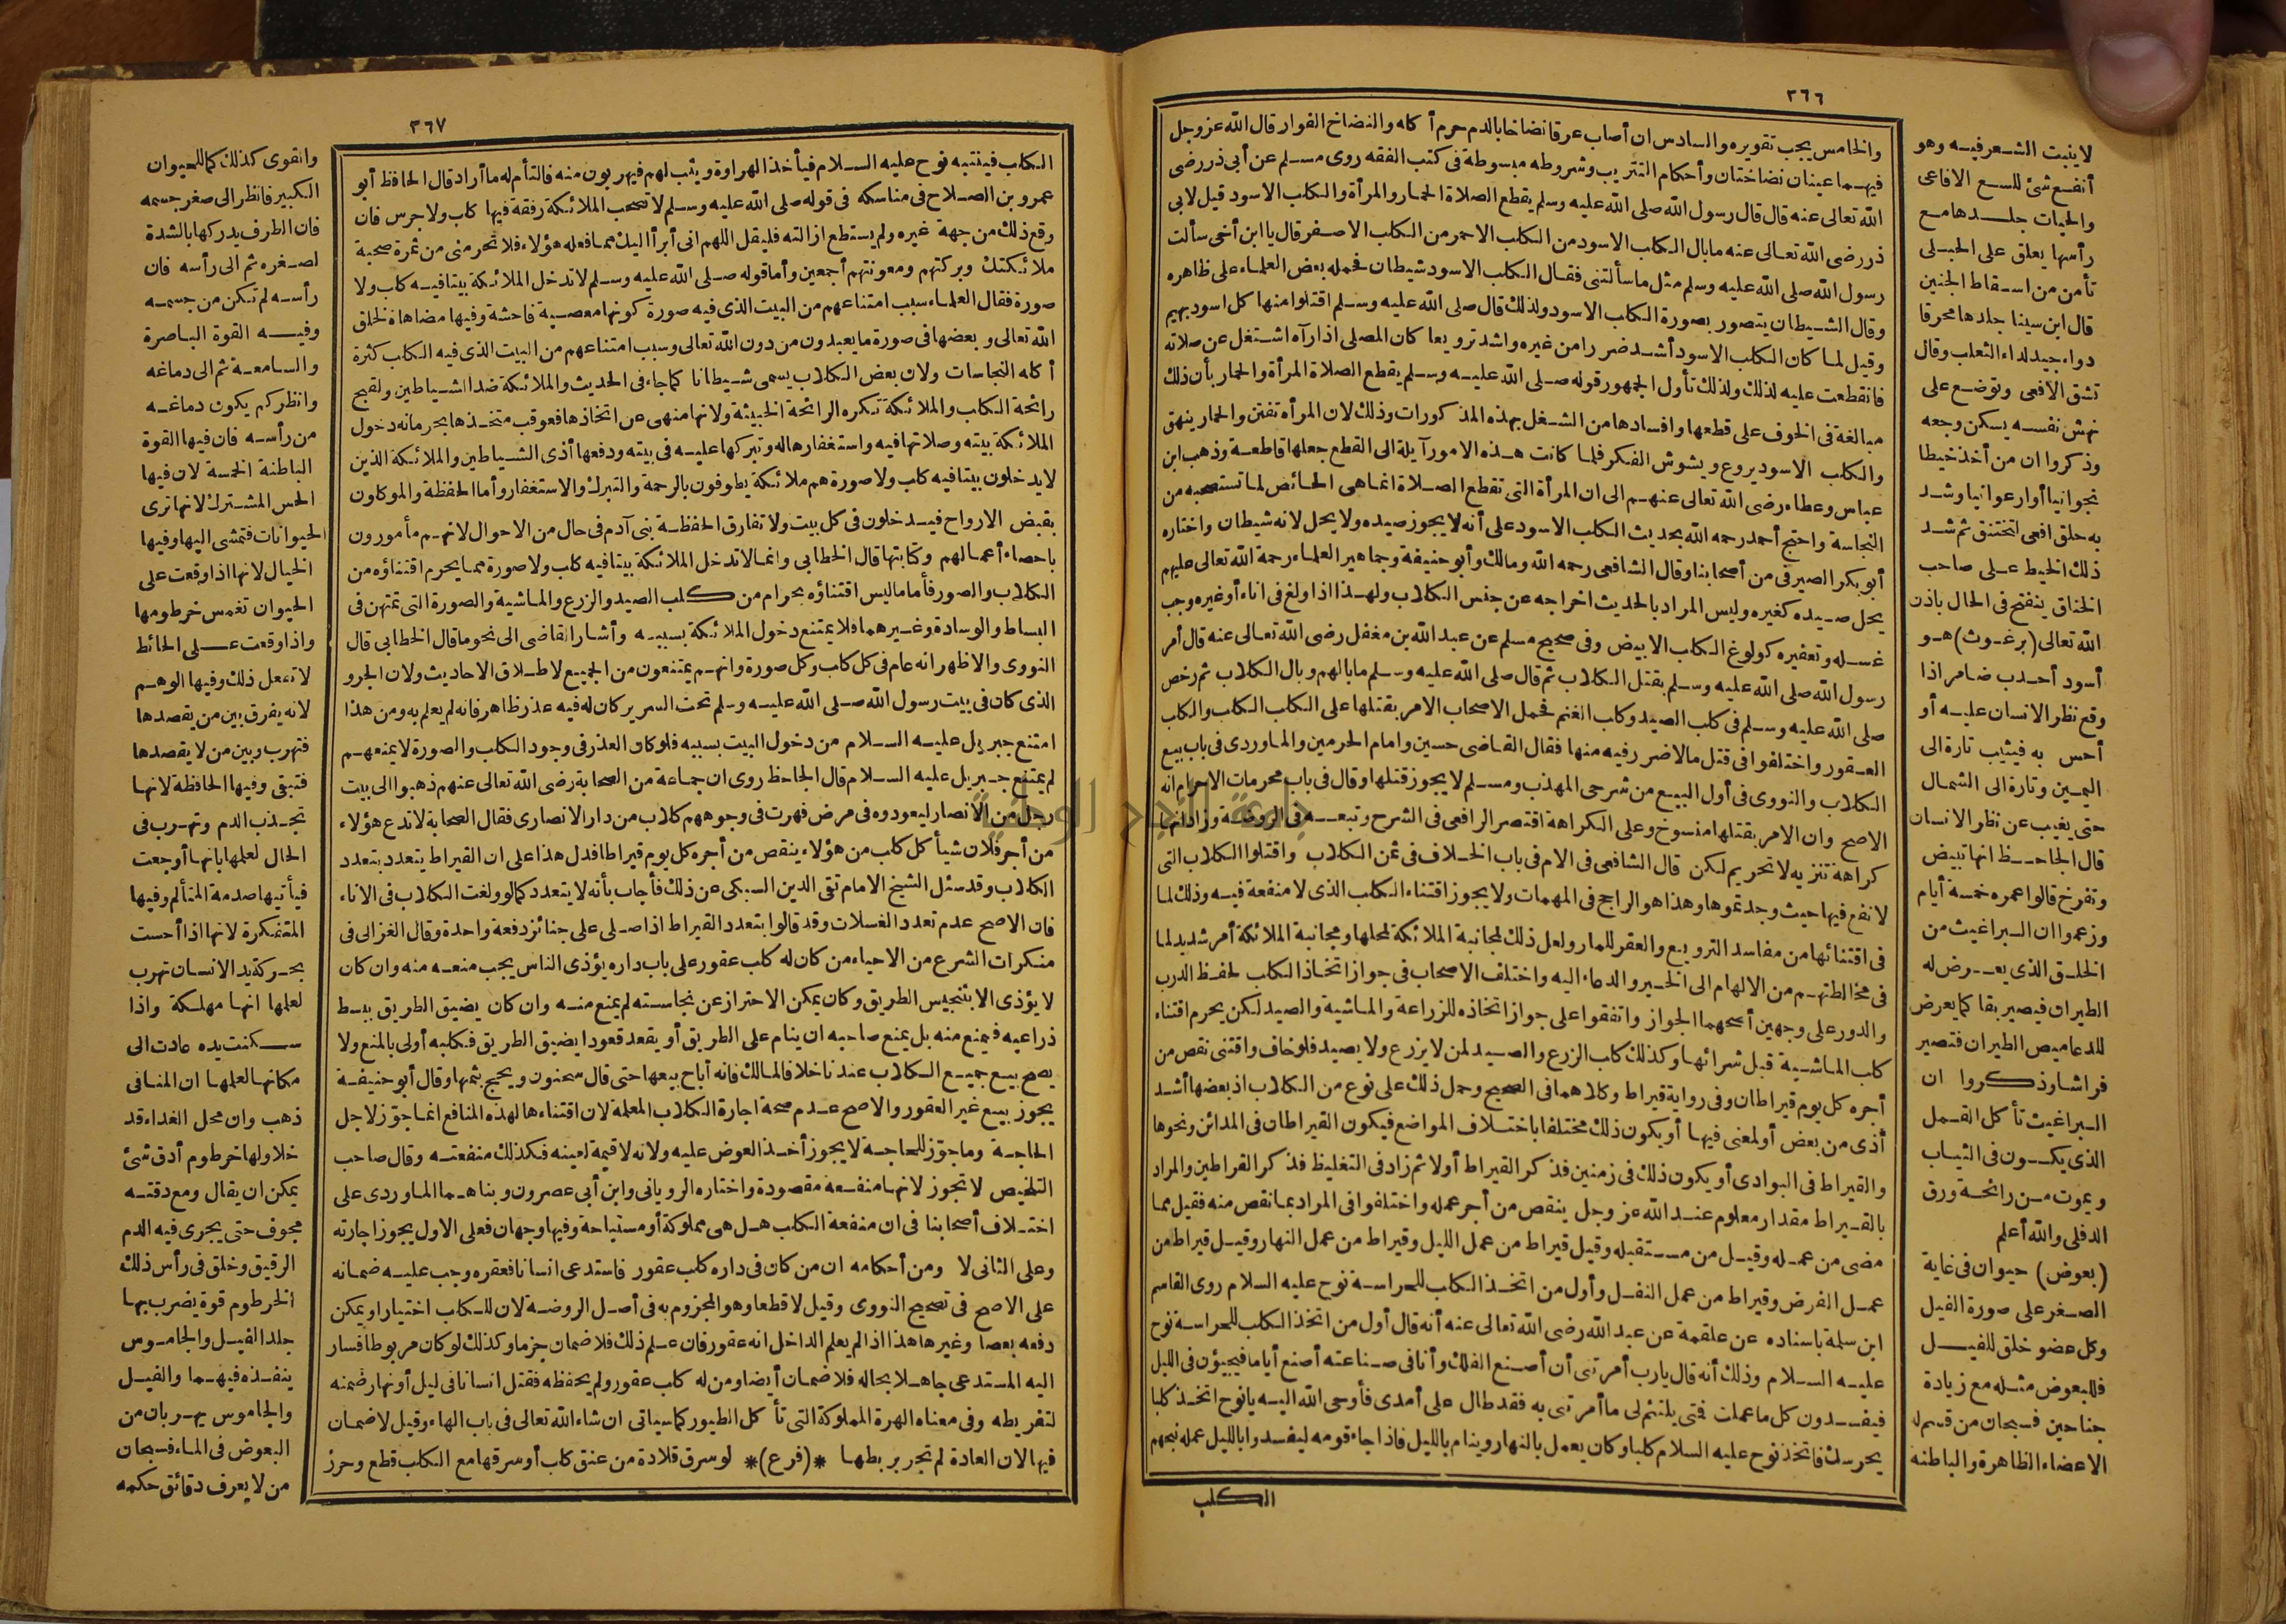 ٣٦٦
والخامس يجب تقويره والسادس ان أصاب عرقا نضاخا بالدم حرم أكله والنضاخ الفوار قال الله عز وجل
فيهما عينان نضاختان وأحكام التتريب وشروطه مبسوطة فى كتب الفقه روى مسلم عن أبى ذر رضى
الله تعالى عنه قال قال رسول الله صلى الله عليه وسلم يقطع الصلاة الحمار والمرأة والكلب الاسود قيل لابى
ذر رضى الله تعالى عنه ما بال الكلب الاسود من الكلب الاحمر من الكلب الاصفر قال يا ابن أخى سألت
رسول الله صلى الله عليه وسلم مثل ما سألتنى فقال الكلب الاسود شيطان فحمله بعض العلماء على ظاهره
وقال الشيطان يتصور بصورة الكلب الاسود ولذلك قال صلى الله عليه وسلم اقتلوا منها كل اسود بهيم
وقيل لما كان الكلب الاسود أشد ضررا من غيره واشد ترويعا كان المصلى اذا رآه اشتغل عن صلاته
فانقطعت عليه لذلك ولذلك تأول الجمهور قوله صلى الله عليه وسلم يقطع الصلاة المرأة والحمار بأن ذلك
مبالغة فى الخوف على قطعها وافسادها من الشغل بهذه المذكورات وذلك لان المرأة تفتن والحمار ينهق
والكلب الاسود يروع ويشوش الفكر فلما كانت هذه الامور آيلة الى القطع جعلها قاطعة وذهب ابن
عباس وعطاء رضى الله تعالى عنهم الى ان المرأة التى تقطع الصلاة انما هى الحائض لما تستصحبه من
النجاسة واحتج أحمد رحمه الله بحديث الكلب الاسود على أنه لا يجوز صيده ولا يحل لانه شيطان واختاره
أبو بكر الصيرفى من أصحابنا وقال الشافعى رحمه الله ومالك وأبو حنيفة وجماهير العلماء رحمة الله تعالى عليهم
يحل صيده كغيره وليس المراد بالحديث اخراجه عن جنس الكلاب ولهذا اذا ولغ فى اناء أو غيره وجب
غسله وتعفيره كولوغ الكلب الابيض وفى صحيح مسلم عن عبد الله بن مغفل رضى الله تعالى عنه قال أمر
رسول الله صلى الله عليه وسلم بقتل الكلاب ثم قال صلى الله عليه وسلم ما بالهم وبال الكلاب ثم رخص
صلى الله عليه وسلم فى كلب الصيد وكلب الغنم فحمل الاصحاب الامر بقتلها على الكلب الكلب والكلب
العقور واختلفوا فى قتل مالا ضرر فيه منها فقال القاضى حسين وامام الحرمين والماوردى فى باب بيع
الكلاب والنووى فى أول البيع من شرحى المهذب ومسلم لا يجوز قتلها وقال فى باب محرمات الاحرام انه
الاصح وان الامر بقتلها منسوخ وعلى الكراهة اقتصر الرافعى فى الشرح وتبعه فى الروضة وزاد انها
كراهة تنزيه لا تحريم لكن قال الشافعى فى الام فى باب الخلاف فى ثمن الكلاب واقتلوا الكلاب التى
لا نفع فيها حيث وجدتموها وهذا هو الراجح فى المهمات ولا يجوز اقتناء الكلب الذى لا منفعة فيه وذلك لما
فى اقتنائها من مفاسد الترويع والعقر للمار ولعل ذلك لمجانبة الملائكة لمحلها ومجانبة الملائكة أمر شديد لما
فى مخالطتهم من الالهام الى الخير والدعاء اليه واختلف الاصحاب فى جواز اتخاذ الكلب لحفظ الدرب
والدور على وجهين أصحهما الجواز واتفقوا على جواز اتخاذه للزراعة والماشية والصيد لكن يحرم اقتناء
كلب الماشية قبل شرائها وكذلك كلب الزرع والصيد لمن لا يزرع ولا يصيد فلو خاف واقتنى نقص من
أجره كل يوم قيراطان وفى رواية قيراط وكلاهما فى الصحيح وحمل ذلك على نوع من الكلاب اذ بعضها أشد
أذى من بعض أو لمعنى فيها أو يكون ذلك مختلفا باختلاف المواضع فيكون القيراطان فى المدائن ونحوها
والقيراط فى البوادى أو يكون ذلك فى زمنين فذكر القيراط أولا ثم زاد فى التغليظ فذكر القراطين والمراد
بالقيراط مقدار معلوم عند الله عز وجل ينقص من أجر عمله واختلفوا فى المراد بما نقص منه فقيل مما
مضى من عمله وقيل من مستقبله وقيل قيراط من عمل الليل وقيراط من عمل النهار وقيل قيراط من
عمل الفرض وقيراط من عمل النفل وأول من اتخذ الكلب للحراسة نوح عليه السلام روى القاسم
ابن سلمة باسناده عن علقمة عن عبد الله رضى الله تعالى عنه أنه قال أول من اتخذ الكلب للحراسة نوح
عليه السلام وذلك أنه قال يارب أمرتنى أن أصنع الفلك وأنا فى صناعته أصنع أياما فيجيؤن فى الليل
فيفسدون كل ما عملت فتى يلتئم لى ما أمرتنى به فقد طال على أمدى فأوحى الله اليه يا نوح اتخذ كلبا
يحرسك فاتخذ نوح عليه السلام كلبا وكان يعمل بالنهار وينام بالليل فاذا جاء قومه ليفسدوا بالليل عمله نبحهم
الكلب
لا ينبت الشعر فيه وهو
أنفع شئ للسع الافاعى
والحيات جلدها مع
رأسها يعلق على الحبلى
تأمن من اسقاط الجنين
قال ابن سينا جلدها محرقا
دواء جيد لداء الثعلب وقال
تشق الافعى وتوضع على
نهش نفسه يسكن وجعه
وذكروا ان من أخذ خيطا
نجوانيا أو ارعوانيا وشد
به حلق افعى لتختنق ثم شد
ذلك الخيط على صاحب
الخناق ينفتح فى الحال باذن
الله تعالى (برغوث) هو
أسود أحدب ضامر اذا
وقع نظر الانسان عليه أو
أحس به فيثيب تارة الى
اليمين وتارة الى الشمال
حتى يغيب عن نظر الانسان
قال الجاحظ انها تبيض
وتفرخ قالوا عمره خمسة أيام
وزعموا ان البراغيث من
الخلق الذى يعرض له
الطيران فيصير بقا كما يعرض
للدعاميص الطيران فتصير
فراشا وذكروا ان
البراغيث تأكل القمل
الذى يكون فى الثياب
ويموت من رائحة ورق
الدفلى والله أعلم
(بعوض) حيوان فى غاية
الصغر على صورة الفيل
وكل عضو خلق للفيل
فللبعوض مثله مع زيادة
جناحين فسبحان من قسم له
الاعضاء الظاهرة والباطنة
٣٦٧
الكلب فينتبه نوح عليه السلام فيأخذ الهراوة ويثب لهم فيهربون منه فالتأم له ما أراد قال الحافظ أبو
عمرو بن الصلاح فى مناسكه فى قوله صلى الله عليه وسلم لا تصحب الملائكة رفقة فيها كلب ولا جرس فان
وقع ذلك من جهة غيره ولم يستطع ازالته فليقل اللهم انى أبرأ اليك مما فعله هؤلاء فلا تحرمنى من ثمرة صحبة
ملائكتك وبركتهم ومعونتهم أجمعين وأما قوله صلى الله عليه وسلم لا تدخل الملائكة بيتا فيه كلب ولا
صورة فقال العلماء سبب امتناعهم من البيت الذى فيه صورة كونها معصية فاحشة وفيها مضاهاة لخلق
الله تعالى وبعضها فى صورة ما يعبدون من دون الله تعالى وسبب امتناعهم من البيت الذى فيه الكلب كثرة
أكله النجاسات ولان بعض الكلاب يسمى شيطانا كما جاء فى الحديث والملائكة ضد الشياطين ولقبح
رائحة الكلب والملائكة تكره الرائحة الخبيثة ولانها منهى عن اتخاذها فعوقب متخذها بحرمانه دخول
الملائكة بيته وصلاتها فيه واستغفارها له وتبركها عليه فى بيته ودفعها أذى الشياطين والملائكة الذين
لا يدخلون بيتا فيه كلب ولا صورة هم ملائكة يطوفون بالرحمة والتبرك والاستغفار وأما الحفظة والموكلون
بقبض الارواح فيدخلون فى كل بيت ولا تفارق الحفظة بنى آدم فى حال من الاحوال لانهم مأمورون
باحصاء أعمالهم وكتابتها قال الخطابى وانما لا تدخل الملائكة بيتا فيه كلب ولا صورة مما يحرم اقتناؤه من
الكلاب والصور فأما ما ليس اقتناؤه بحرام من كلب الصيد والزرع والماشية والصورة التى تمتهن فى
البساط والوسادة وغيرهما فلا يمتنع دخول الملائكة بسببه وأشار القاضى الى نحو ما قال الخطابى قال
النووى والاظهر انه عام فى كل كلب وكل صورة وانهم يمتنعون من الجميع لاطلاق الاحاديث ولان الجرو
الذى كان فى بيت رسول الله صلى الله عليه وسلم تحت السرير كان له فيه عذر ظاهر فانه لم يعلم به ومن هذا
امتنع جبريل عليه السلام من دخول البيت بسببه فلو كان العذر فى وجود الكلب والصورة لا يمنعهم
لم يمتنع جبريل عليه السلام قال الجاحظ روى ان جماعة من الصحابة رضى الله تعالى عنهم ذهبوا الى بيت
رجل من الانصار ليعودوه فى مرض فهرت فى وجوههم كلاب من دار الانصارى فقال الصحابة لا تدع هؤلاء
من أجر فلان شيأ كل كلب من هؤلاء ينقص من أجره كل يوم قيراطا فدل هذا على ان القيراط يتعدد بتعدد
الكلاب وقد سئل الشيخ الامام تقى الدين السبكى عن ذلك فأجاب بأنه لا يتعدد كما لو ولغت الكلاب فى الاناء
فان الاصح عدم تعدد الغسلات وقد قالوا بتعدد القيراط اذا صلى على جنائز دفعة واحدة وقال الغزالى فى
منكرات الشرع من الاحياء من كان له كلب عقور على باب داره يؤذى الناس يجب منعه منه وان كان
لا يؤذى الا بتنجيس الطريق وكان يمكن الاحتراز عن نجاسته لم يمنع منه وان كان يضيق الطريق ببسط
ذراعيه فيمنع منه بل يمنع صاحبه ان ينام على الطريق أو يقعد قعودا يضيق الطريق فكلبه أولى بالمنع ولا
يصح بيع جميع الكلاب عندنا خلافا لمالك فانه أباح بيعها حتى قال سحنون ويحج بثمنها وقال أبو حنيفة
يجوز بيع غير العقور والاصح عدم صحة اجارة الكلاب المعلمة لان اقتناءها لهذه المنافع انما جوز لاجل
الحاجة وما جوز للحاجة لا يجوز أخذ العوض عليه ولانه لا قيمة لعينه فكذلك منفعته وقال صاحب
التلخيص لا تجوز لانها منفعة مقصودة واختاره الرويانى وابن أبى عصرون وبناهما الماوردى على
اختلاف أصحابنا فى ان منفعة الكلب هل هى مملوكة أو مستباحة وفيها وجهان فعلى الاول يجوز اجارته
وعلى الثانى لا ومن أحكامه ان من كان فى داره كلب عقور فاستدعى انسانا فعقره وجب عليه ضمانه
على الاصح فى تصحيح النووى وقيل لا قطعا وهو المجزوم به فى أصل الروضة لان للكلب اختيارا ويمكن
دفعه بعصا وغيرها هذا اذا لم يعلم الداخل انه عقور فان علم ذلك فلا ضمان جزما وكذلك لو كان مربوطا فسار
اليه المستدعى جاهلا بحاله فلا ضمان أيضا ومن له كلب عقور ولم يحفظه فقتل انسانا فى ليل أو نهار ضمنه
لتفريطه وفى معناه الهرة المملوكة التى تأكل الطيور كما سياتى ان شاء الله تعالى فى باب الهاء وقيل لا ضمان
فيها لان العادة لم تجر بربطها *(فرع)* لو سرق قلادة من عنق كلب أو سرقها مع الكلب قطع وحرز
وانقوى كذلك كما للحيوان
الكبير فانظر الى صغر جسمه
فان الطرف يدركها بالشدة
لصغره ثم الى رأسه فان
رأسه لم تكن من جسمه
وفيه القوة الباصرة
والسامعة ثم الى دماغه
وانظر كم يكون دماغه
من رأسه فان فيها القوة
الباطنة الخمسة لان فيها
الحس المشترك لانها ترى
الحيوانات فتمشى اليها وفيها
الخيال لانها اذا وقعت على
الحيوان تغمس خرطومها
واذا وقعت على الحائط
لا تفعل ذلك وفيها الوهم
لانه يفرق بين من يقصدها
فتهرب وبين من لا يقصدها
فتبقى وفيها الحافظة لانها
تجذب الدم وتهرب فى
الحال لعلمها بانها أوجعت
فيأتيها صدمة المتألم وفيها
المتفكرة لانها اذا أحست
بحركة يد الانسان تهرب
لعلمها انها مهلكة واذا
سكنت يده عادت الى
مكانها لعلمها ان المنافى
ذهب وان محل الغداء قد
خلا ولها خرطوم أدق شئ
يمكن ان يقال ومع دقته
مجوف حتى يجرى فيه الدم
الرقيق وخلق فى رأس ذلك
الخرطوم قوة يضرب بها
جلد الفيل والجاموس
ينفذه فيهما والفيل
والجاموس يهربان من
البعوض فى الماء فسبحان
من لا يعرف دقائق حكمه
جامعة النجاح الوطنية